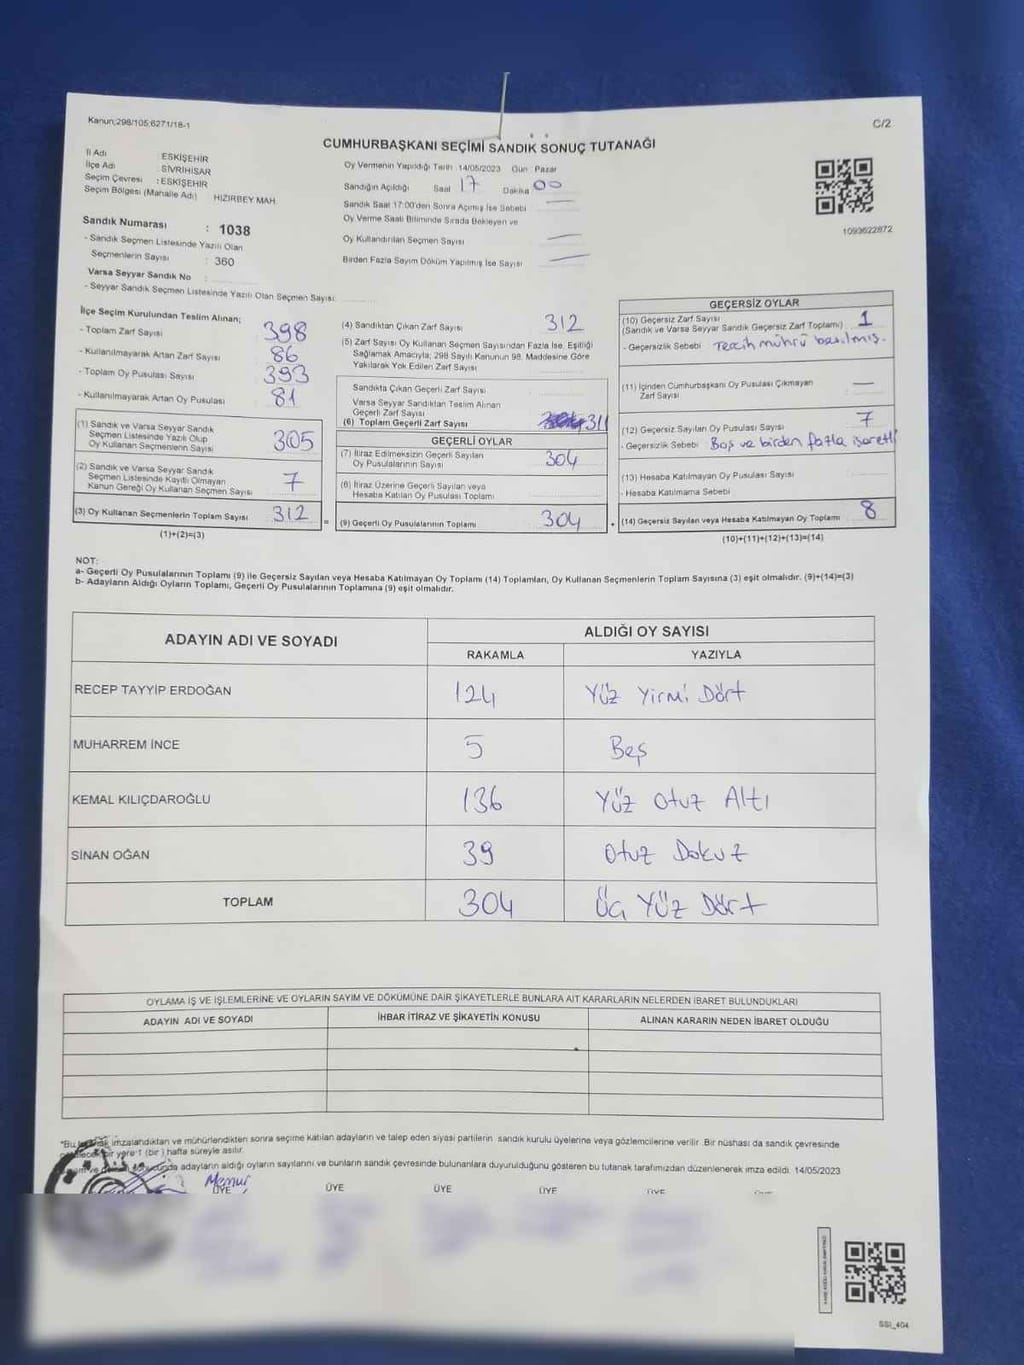 Kanun;298/105;6271/18-1
C/2
CUMHURBAŞKANI SEÇİMİ SANDIK SONUÇ TUTANAĞI
İl Adı : ESKİŞEHİR
İlçe Adı : SİVRİHİSAR
Seçim Çevresi : ESKİŞEHİR
Seçim Bölgesi (Mahalle Adı) HIZIRBEY MAH.
Sandık Numarası : 1038
- Sandık Seçmen Listesinde Yazılı Olan
Seçmenlerin Sayısı : 360
Varsa Seyyar Sandık No :
- Seyyar Sandık Seçmen Listesinde Yazılı Olan Seçmen Sayısı:
Oy Vermenin Yapıldığı Tarih 14/05/2023 Gün : Pazar
Sandığın Açıldığı Saat 17 Dakika 00
Sandık Saat 17:00'den Sonra Açılmış İse Sebebi —
Oy Verme Saati Bitiminde Sırada Bekleyen ve
Oy Kullandırılan Seçmen Sayısı —
Birden Fazla Sayım Döküm Yapılmış İse Sayısı —
1093622872
İlçe Seçim Kurulundan Teslim Alınan;
- Toplam Zarf Sayısı 398
- Kullanılmayarak Artan Zarf Sayısı 86
- Toplam Oy Pusulası Sayısı 393
- Kullanılmayarak Artan Oy Pusulası 81
(1) Sandık ve Varsa Seyyar Sandık
Seçmen Listesinde Yazılı Olup
Oy Kullanan Seçmenlerin Sayısı 305
(2) Sandık ve Varsa Seyyar Sandık
Seçmen Listesinde Kayıtlı Olmayan
Kanun Gereği Oy Kullanan Seçmen Sayısı 7
(3) Oy Kullanan Seçmenlerin Toplam Sayısı 312
(1)+(2)=(3)
(4) Sandıktan Çıkan Zarf Sayısı 312
(5) Zarf Sayısı Oy Kullanan Seçmen Sayısından Fazla İse, Eşitliği
Sağlamak Amacıyla; 298 Sayılı Kanunun 98. Maddesine Göre
Yakılarak Yok Edilen Zarf Sayısı
Sandıkta Çıkan Geçerli Zarf Sayısı
Varsa Seyyar Sandıktan Teslim Alınan
Geçerli Zarf Sayısı
(6) Toplam Geçerli Zarf Sayısı 311
GEÇERLİ OYLAR
(7) İtiraz Edilmeksizin Geçerli Sayılan
Oy Pusulalarının Sayısı 304
(8) İtiraz Üzerine Geçerli Sayılan veya
Hesaba Katılan Oy Pusulası Toplamı
= (9) Geçerli Oy Pusulalarının Toplamı 304 +
GEÇERSİZ OYLAR
(10) Geçersiz Zarf Sayısı
(Sandık ve Varsa Seyyar Sandık Geçersiz Zarf Toplamı) 1
- Geçersizlik Sebebi Tercih mührü basılmış.
(11) İçinden Cumhurbaşkanı Oy Pusulası Çıkmayan
Zarf Sayısı —
(12) Geçersiz Sayılan Oy Pusulası Sayısı 7
- Geçersizlik Sebebi Boş ve birden fazla işaretli
(13) Hesaba Katılmayan Oy Pusulası Sayısı
- Hesaba Katılmama Sebebi
(14) Geçersiz Sayılan veya Hesaba Katılmayan Oy Toplamı 8
(10)+(11)+(12)+(13)=(14)
NOT:
a- Geçerli Oy Pusulalarının Toplamı (9) ile Geçersiz Sayılan veya Hesaba Katılmayan Oy Toplamı (14) Toplamları, Oy Kullanan Seçmenlerin Toplam Sayısına (3) eşit olmalıdır. (9)+(14)=(3)
b- Adayların Aldığı Oyların Toplamı, Geçerli Oy Pusulalarının Toplamına (9) eşit olmalıdır.
ADAYIN ADI VE SOYADI
ALDIĞI OY SAYISI
RAKAMLA YAZIYLA
RECEP TAYYİP ERDOĞAN 124 Yüz Yirmi Dört
MUHARREM İNCE 5 Beş
KEMAL KILIÇDAROĞLU 136 Yüz Otuz Altı
SİNAN OĞAN 39 Otuz Dokuz
TOPLAM 304 Üç Yüz Dört
OYLAMA İŞ VE İŞLEMLERİNE VE OYLARIN SAYIM VE DÖKÜMÜNE DAİR ŞİKAYETLERLE BUNLARA AİT KARARLARIN NELERDEN İBARET BULUNDUKLARI
ADAYIN ADI VE SOYADI İHBAR İTİRAZ VE ŞİKAYETİN KONUSU ALINAN KARARIN NEDEN İBARET OLDUĞU
*Bu imzalandıktan ve mühürlendikten sonra seçime katılan adayların ve talep eden siyasi partilerin sandık kurulu üyelerine veya gözlemcilerine verilir .Bir nüshası da sandık çevresinde
bir yere 1 (bir ) hafta süreyle asılır.
adayların aldığı oyların sayılarını ve bunların sandık çevresinde bulunanlara duyurulduğunu gösteren bu tutanak tarafımızdan düzenlenerek imza edildi. 14/05/2023
Memur
ÜYE ÜYE ÜYE ÜYE ÜYE
SSI_404